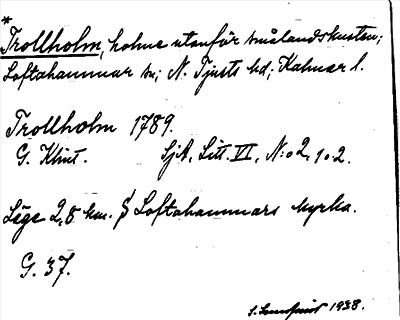 *
Trollholm, holme utanför smålandskusten;
Loftahammar sn; N. Tjusts hd; Kalmar l.
Trollholm 1789.
G. Klint. SjA, Litt. VI, N:o 2, 1 o. 2.
Läge 2,8 km. S Loftahammars kyrka.
G. 37.
1938.